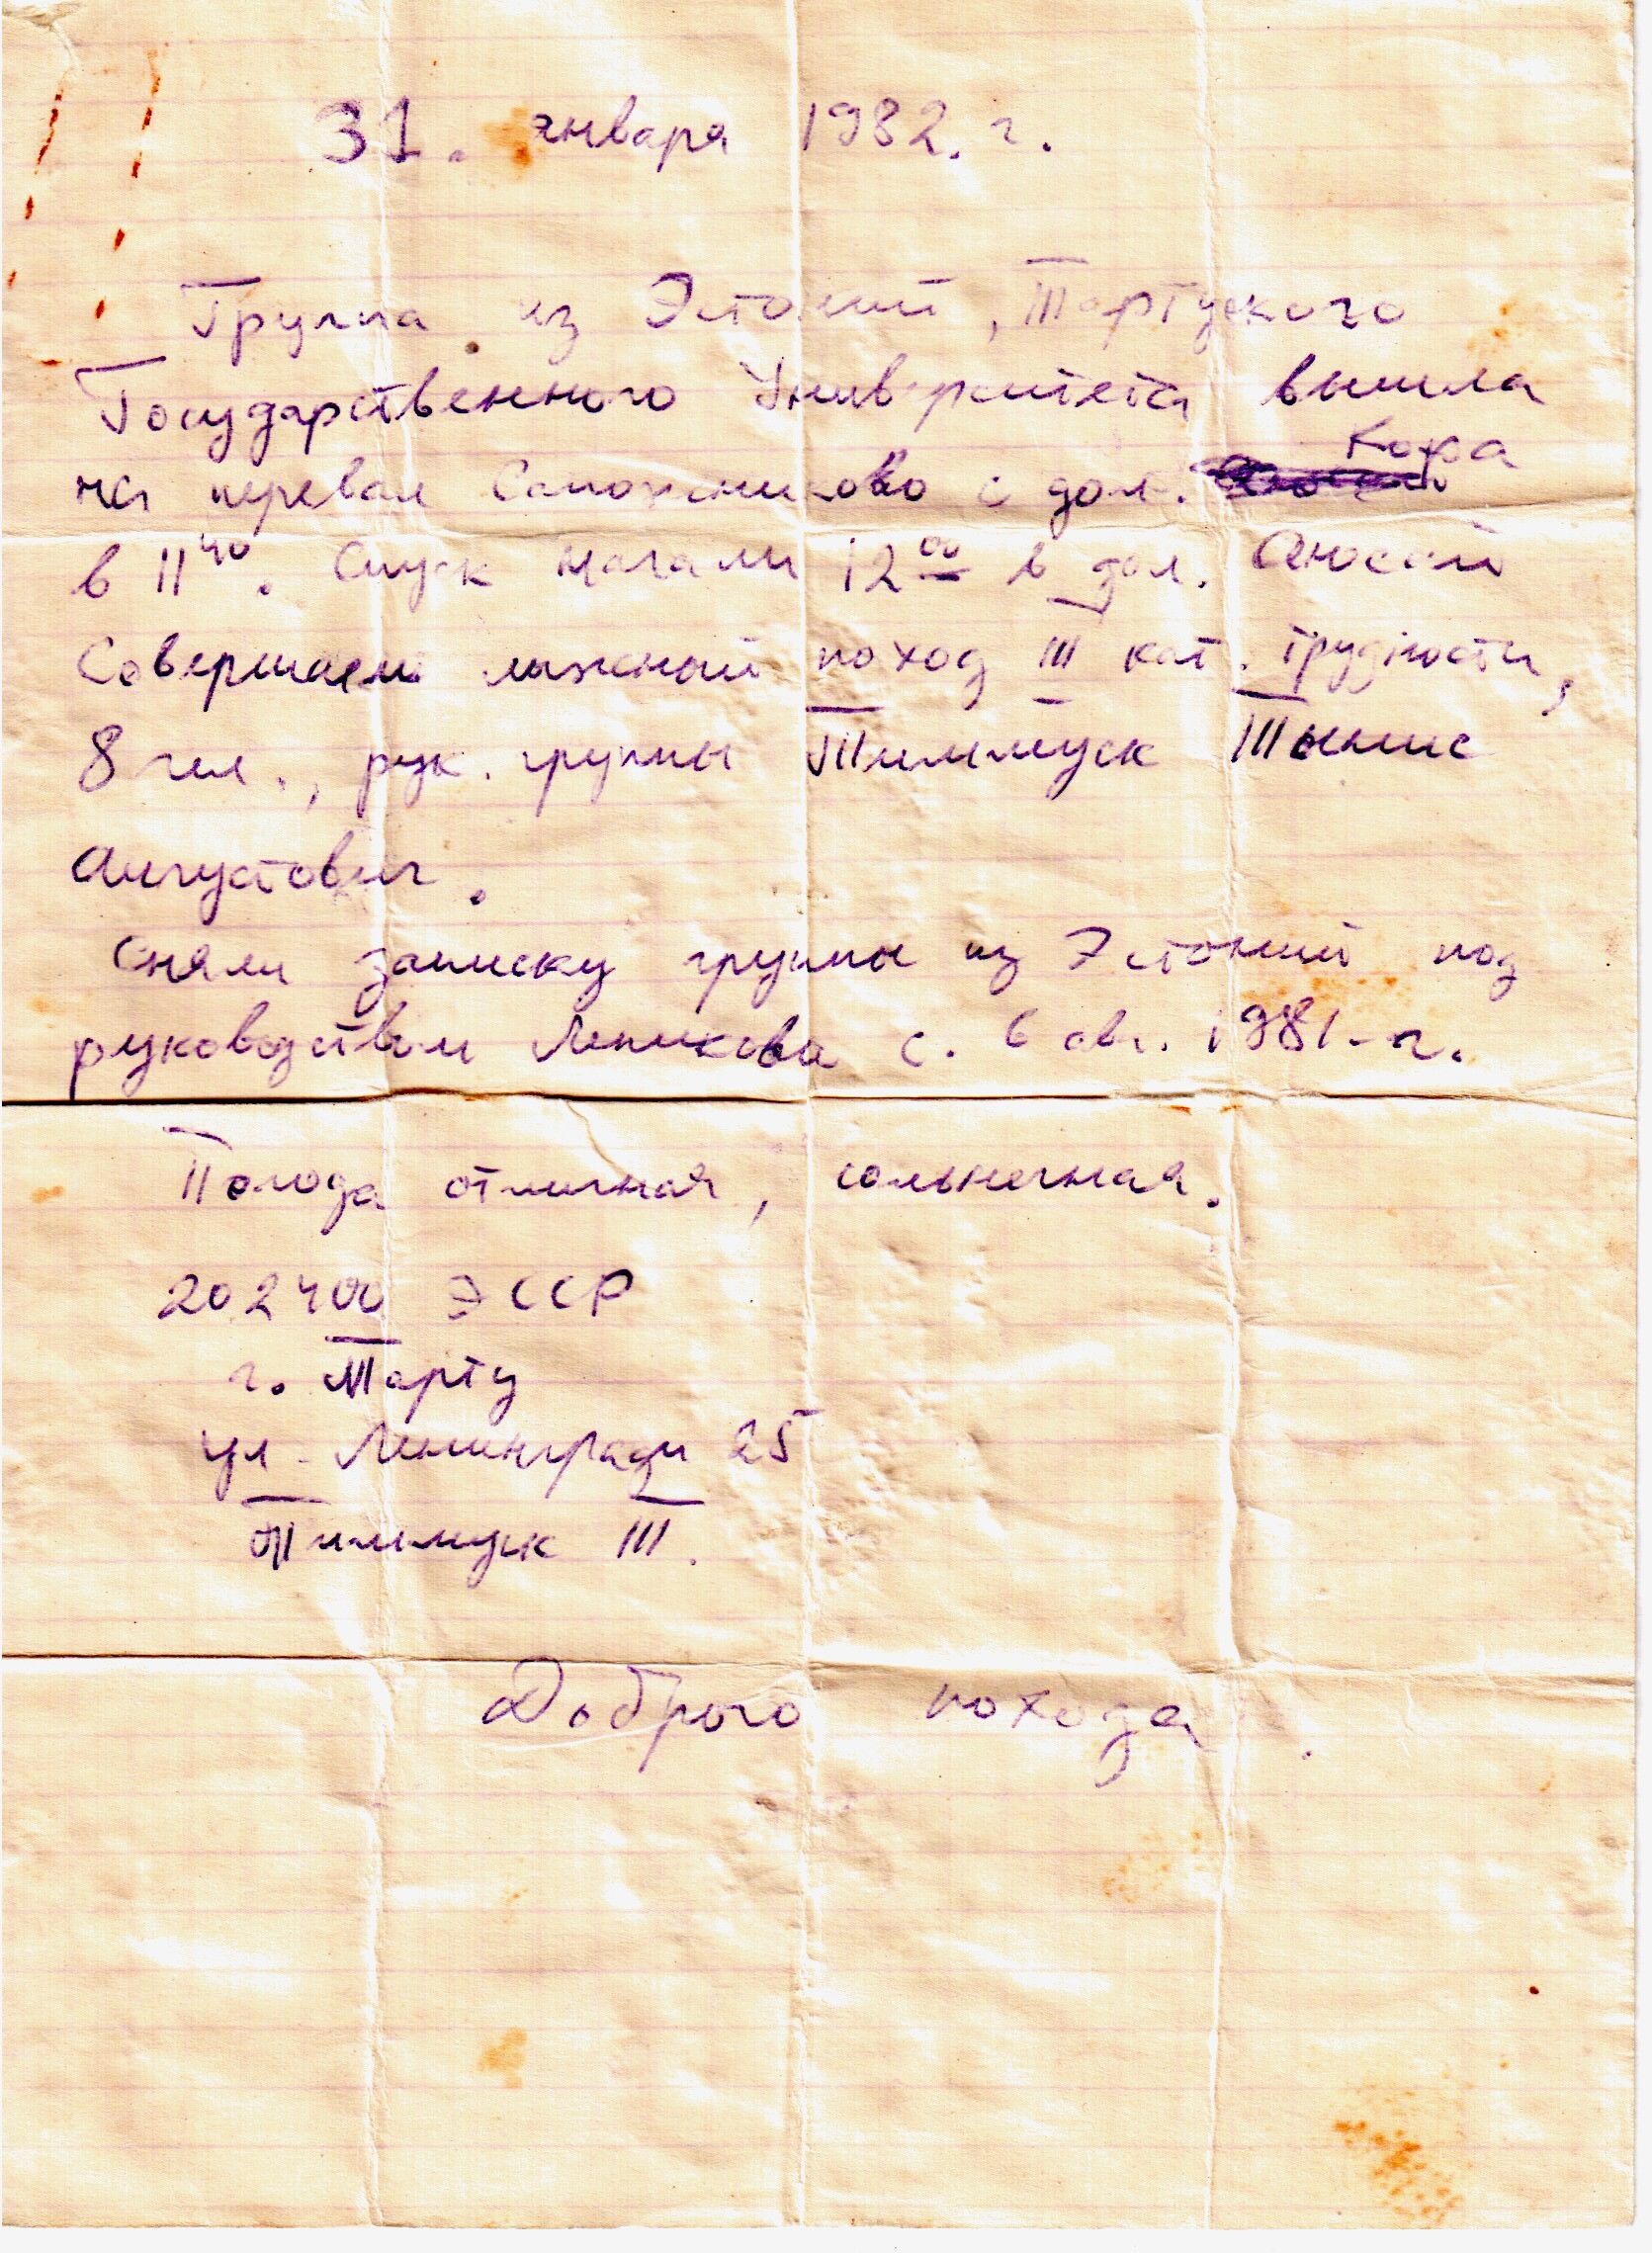 31. января 1982. г.
Группа из Эстоний, Тартуского
Государственного Университета вышла
Кора
на перевал Сапожниково с дол.
в 11⁴⁰. Спуск начали 12⁰⁰ в дол. Аюсай
Совершаем лыжный поход III кат. трудности,
8 чел., рук. группы Тиммуск Тынис
Аугустович.
Сняли записку группы из Эстоний под
руководством с. 6 авг. 1981-г.
Погода отличная, солнечная.
202400 ЭССР
г. Тарту
ул. Ленингради 25
Тиммуск Т.
Доброго похода.